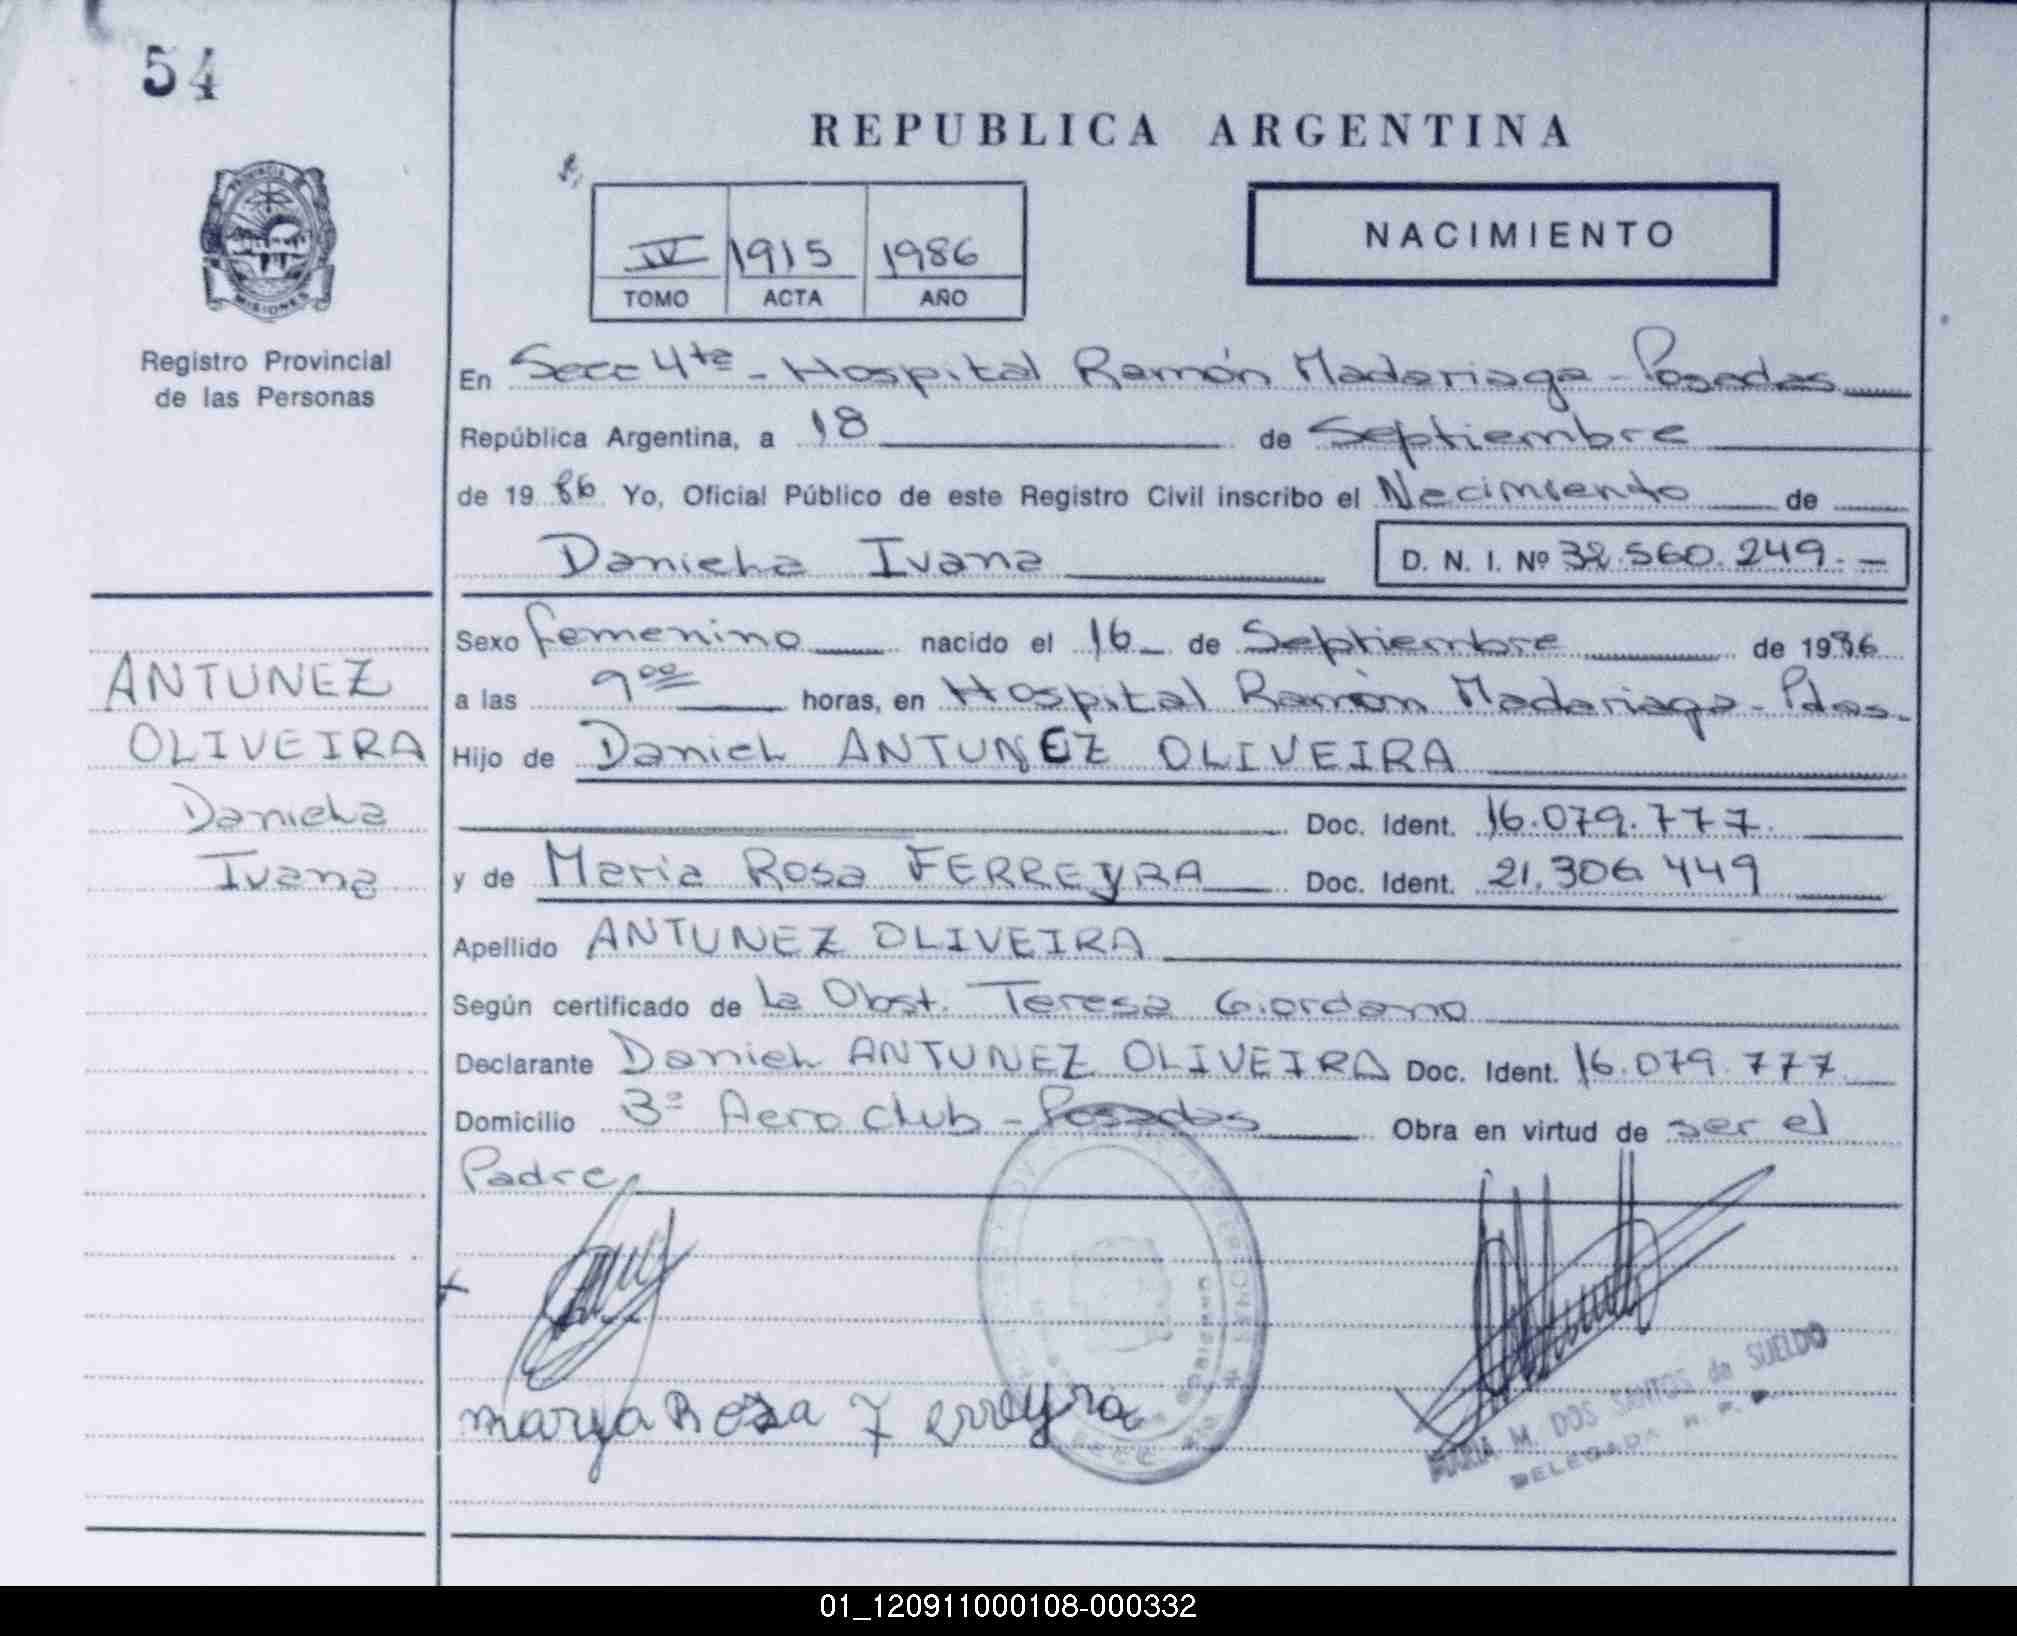 54
REPUBLICA ARGENTINA
PROVINCIA DE MISIONES
IV 1915 1986
TOMO ACTA AÑO
NACIMIENTO
Registro Provincial
de las Personas
En Secc 4ta - Hospital Ramón Madariaga - Posadas
República Argentina, a 18 de Septiembre
de 19 86 Yo, Oficial Público de este Registro Civil inscribo el Nacimiento de
Daniela Ivana D. N. I. Nº 32.560.249.-
Sexo femenino nacido el 16 de Septiembre de 1986
a las 9 00 horas, en Hospital Ramón Madariaga - Pdas.
Hijo de Daniel ANTUNEZ OLIVEIRA
Doc. Ident. 16.079.777.
y de Maria Rosa FERREYRA Doc. Ident. 21.306.449
Apellido ANTUNEZ OLIVEIRA
Según certificado de la Obst. Teresa Giordano
Declarante Daniel ANTUNEZ OLIVEIRA Doc. Ident. 16.079.777
Domicilio Bº Aero Club - Posadas Obra en virtud de ser el
Padre
ANTUNEZ
OLIVEIRA
Daniela
Ivana
marya Rosa Ferreyra
MARIA M. DOS SANTOS de SUELDO
DELEGADA R. P.
01_120911000108-000332